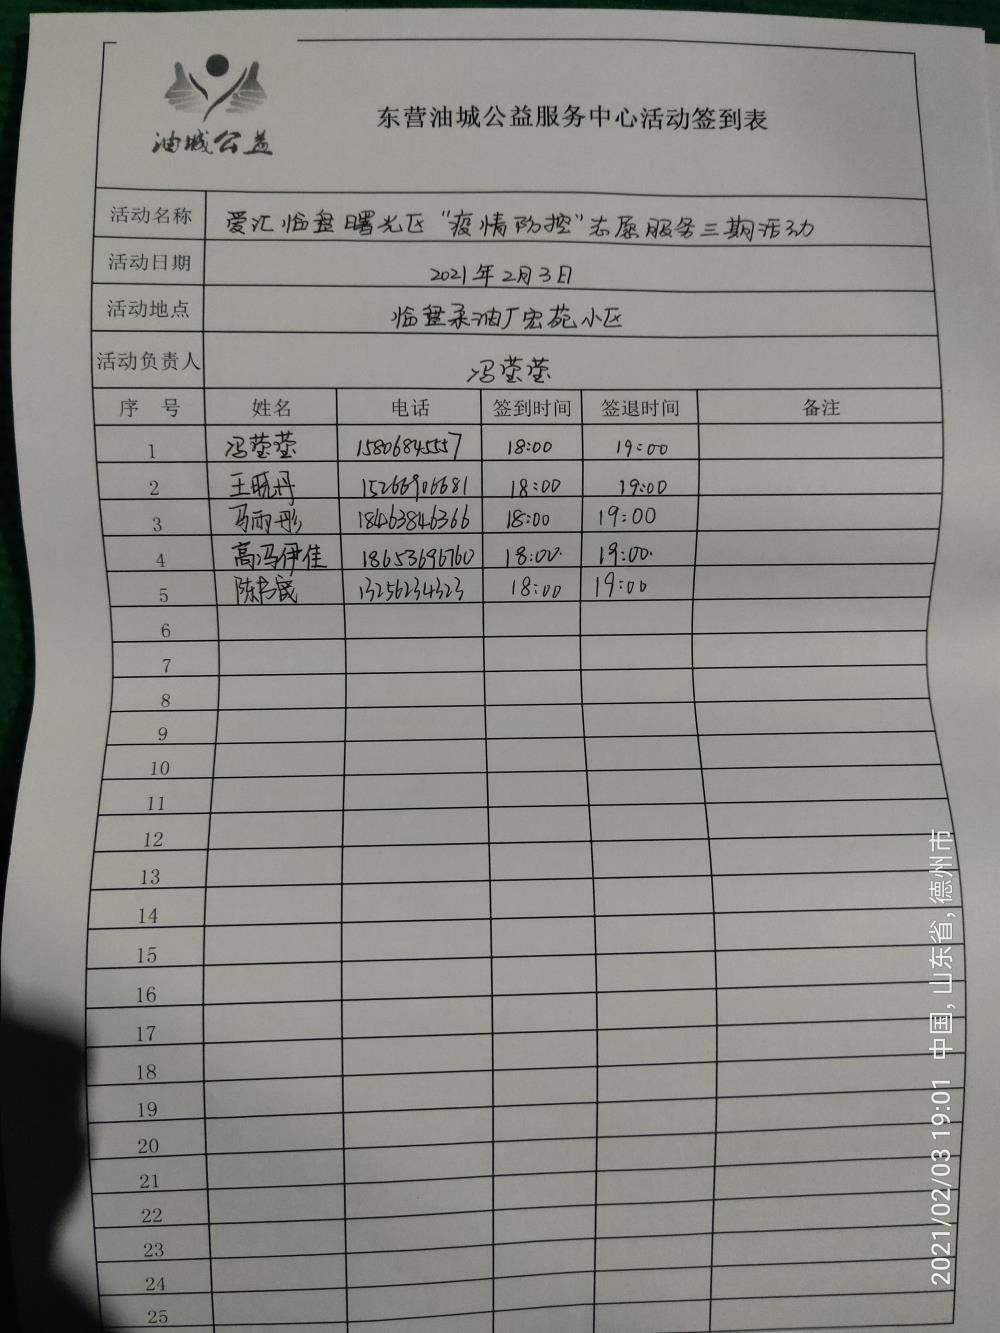 油城公益
东营油城公益服务中心活动签到表
活动名称 爱汇临盘曙光区“疫情防控”志愿服务三期活动
活动日期 2021年2月3日
活动地点 临盘采油厂宏苑小区
活动负责人 冯莹莹
序 号 姓名 电话 签到时间 签退时间 备注
1 冯莹莹 15806845557 18:00 19:00
2 王晓丹 15266906681 18:00 19:00
3 马雨彤 18463846366 18:00 19:00
4 高冯伊佳 18653696760 18:00. 19:00.
5 13256234323 18:00 19:00
6
7
8
9
10
11
12
13
14
15
16
17
18
19
20
21
22
23
24
25
2021/02/03 19:01 中国, 山东省, 德州市